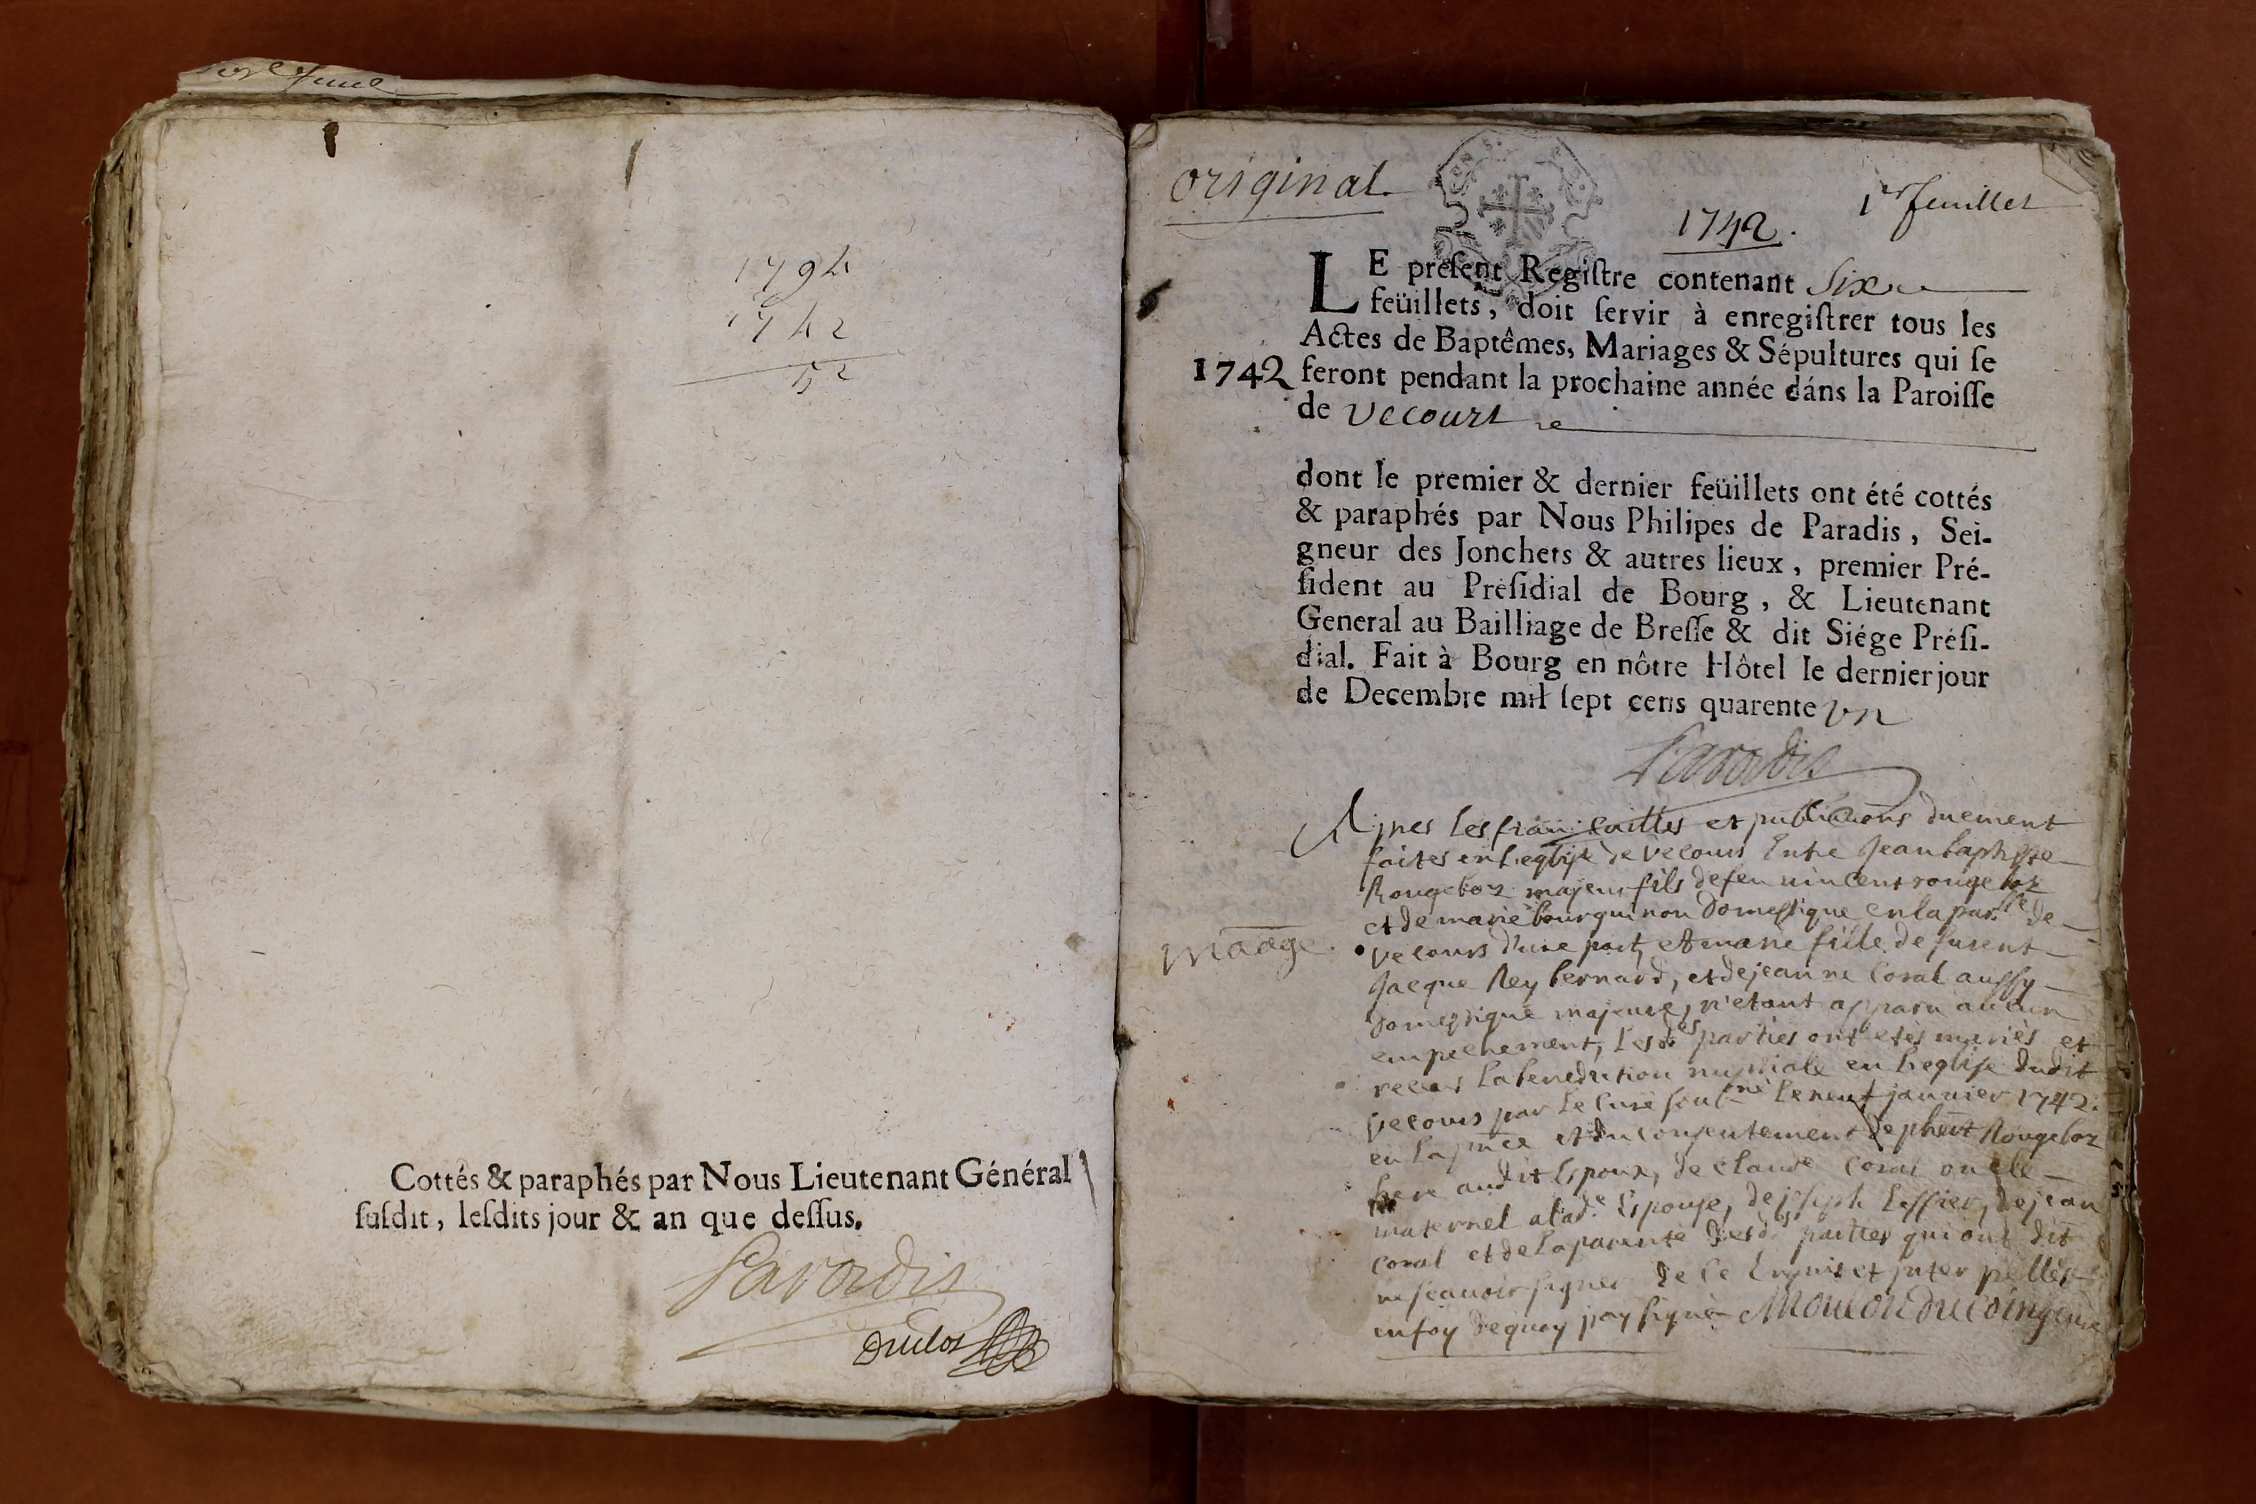 1794
1742
52
Cottés & paraphés par Nous Lieutenant Général
ſuſdit, leſdits jour & an que deſſus.
Paradis
Duclos
original.
1er feuillet
1742.
LE préſent Regiſtre contenant Six
feüillets, doit ſervir à enregiſtrer tous les
Actes de Baptêmes, Mariages & Sépultures qui ſe
1742 feront pendant la prochaine année dáns la Paroiſſe
de Vecourt
dont le premier & dernier feüillets ont été cottés
& paraphés par Nous Philipes de Paradis, Sei-
gneur des Jonchets & autres lieux, premier Pré-
ſident au Préſidial de Bourg, & Lieutenant
General au Bailliage de Breſſe & dit Siége Préſi-
dial. Fait à Bourg en nôtre Hôtel le dernier jour
de Decembre mil ſept cens quarente vn
Paradis
Apres les fiançailles et publications duement
faites en leglise de vecours Entre Jean baptiste
Rougeboz majeur fils de feu vincent rougeboz
et de marie bourguinon Domestique en la parsse de
mãage. vecours d'une part, et marie fille de furent
Jacque Rey bernard, et de jeanne Coral aussy
domestique majeure, n'etant apparu aucun
empechement, lesdes parties ont etés mariés et
recus la benediction nuptiale en l'eglise dudit
vecours par le Curé soubné le neuf janvier 1742.
en la pnce et du consentement de Rougeboz
frere audit Epoux, de Claude Coral oncle
maternel a lade Epouse, de joseph de jean
Coral et de la parenté desds parties qui ont dit
ne scauoir signer de ce Enquis et interpellés
en foy dequoy jay signé